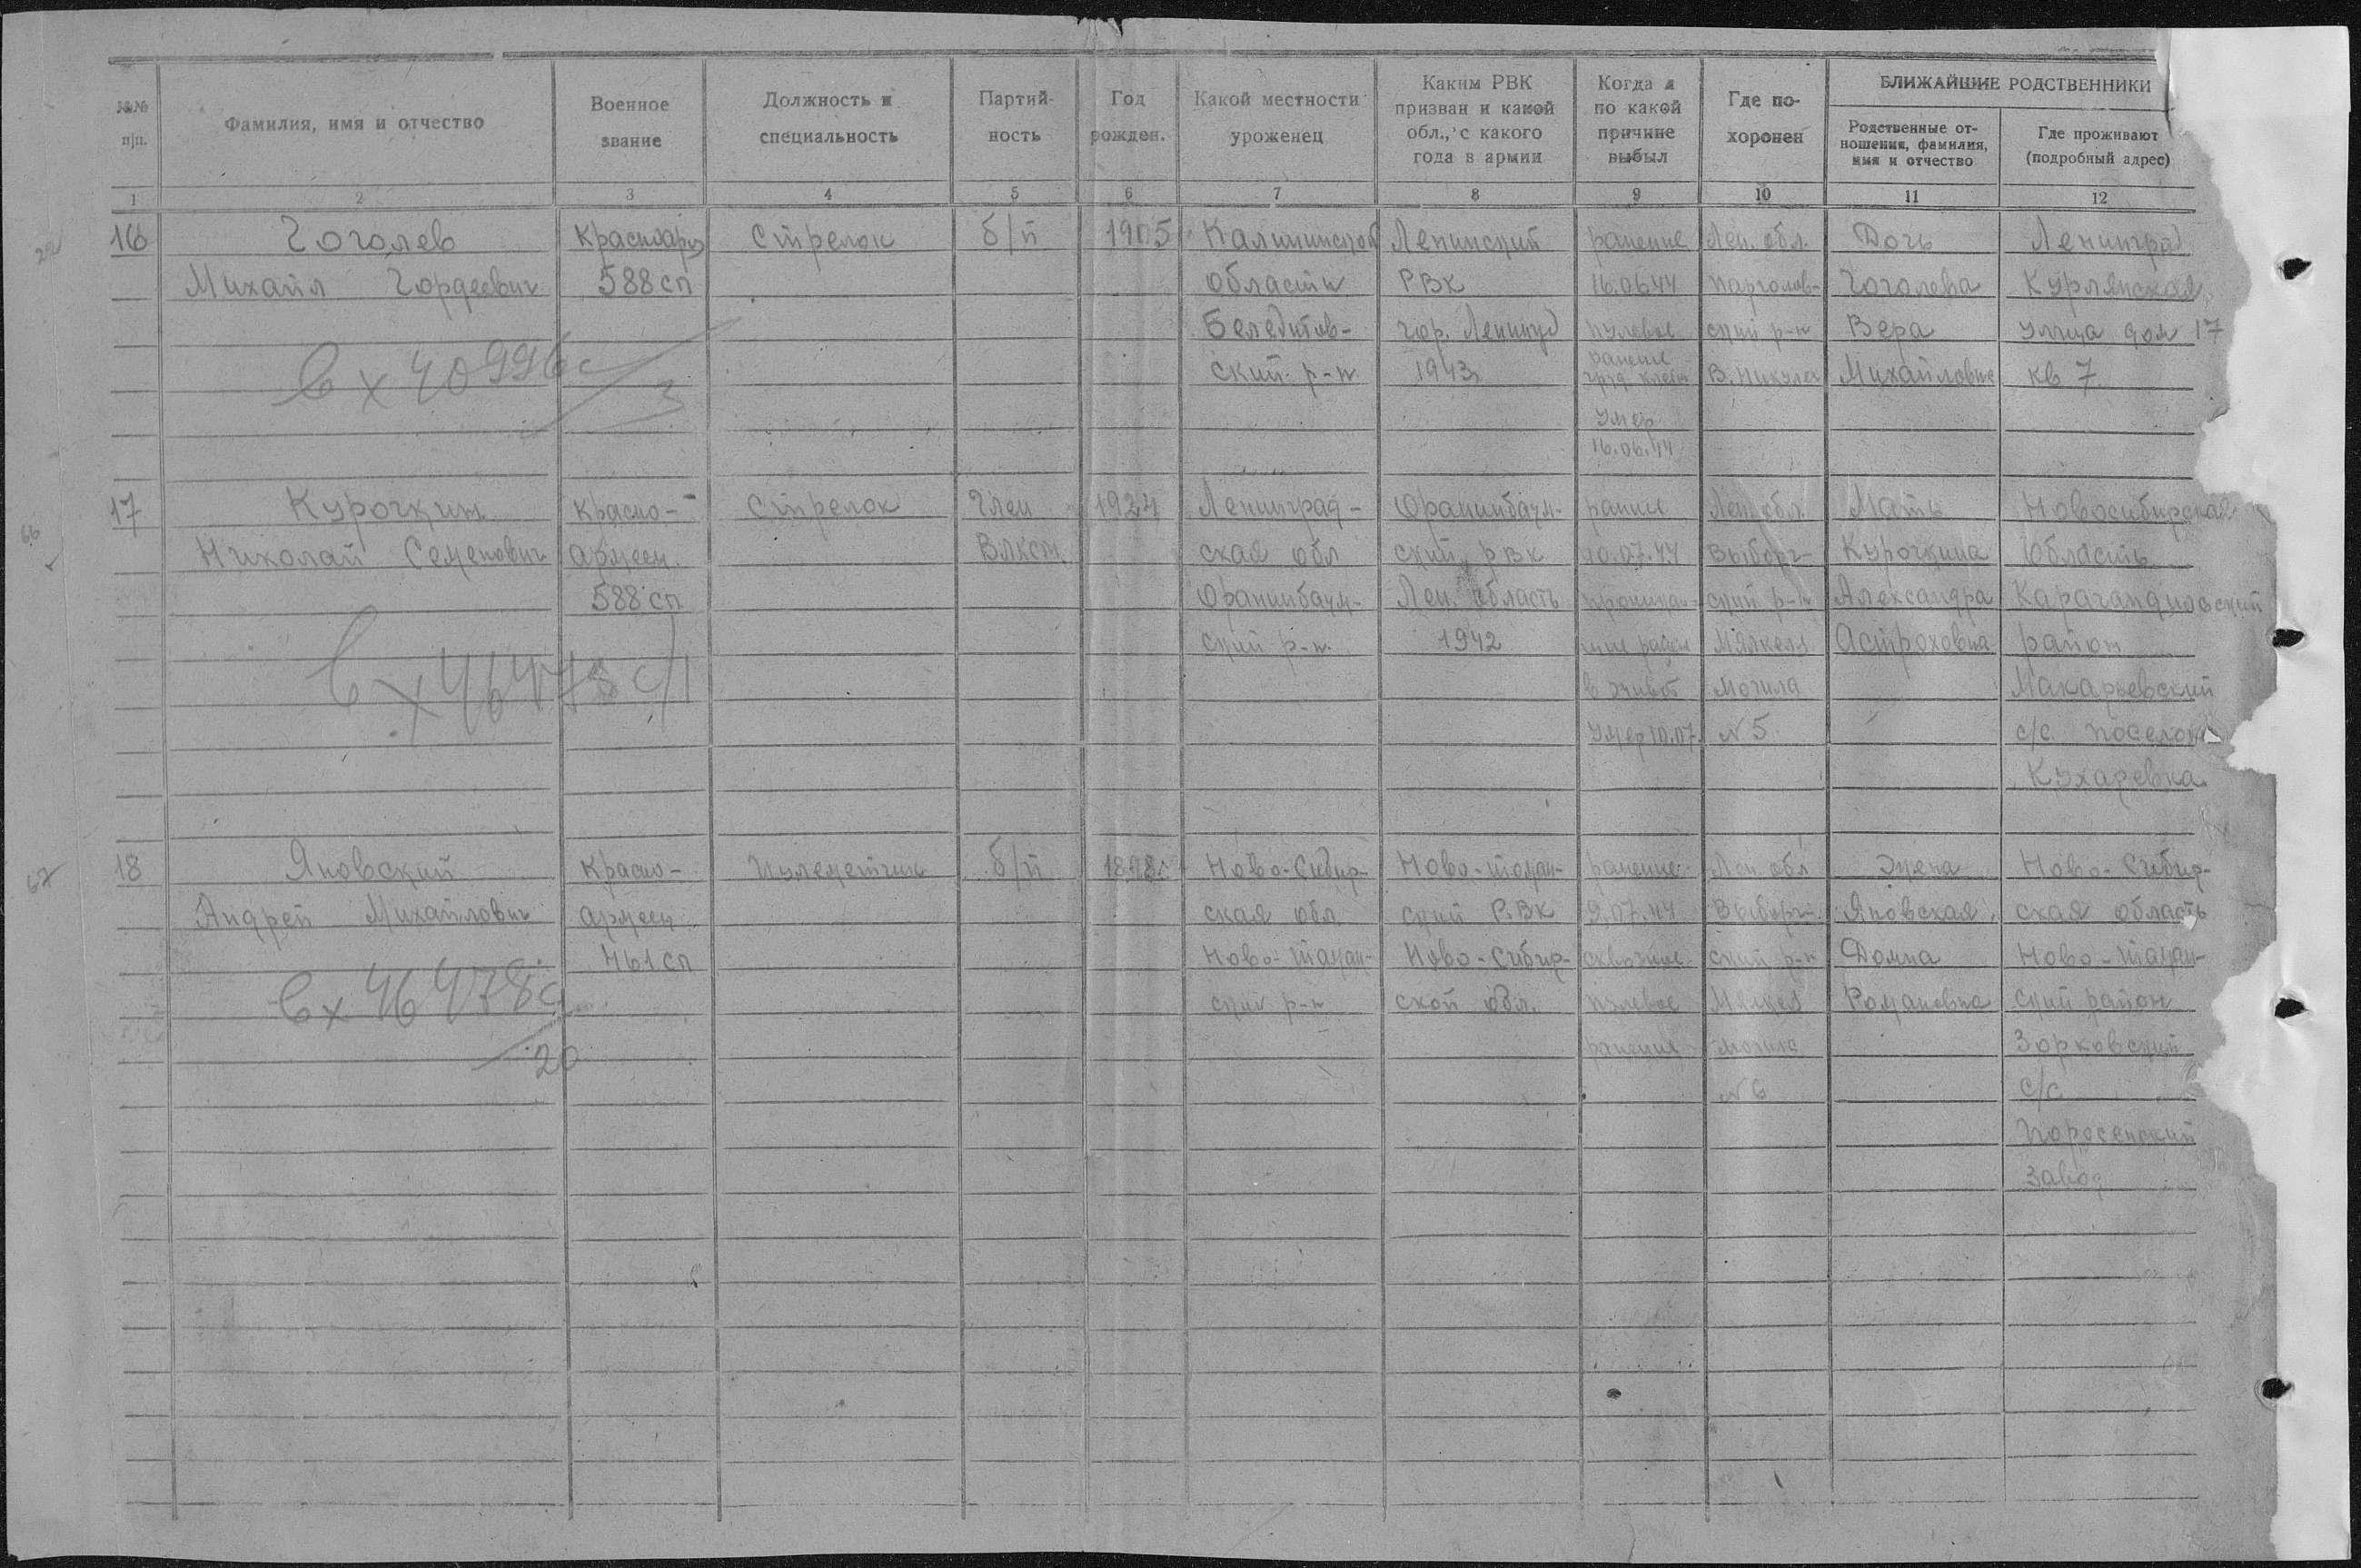 БЛИЖАЙШИЕ РОДСТВЕННИКИ
№№ п/п.
Фамилия, имя и отчество
Военное звание
Должность и специальность
Партий-ность
Год рожден.
Какой местности уроженец
Каким РВК призван и какой обл., с какого года в армии
Когда и по какой причине выбыл
Где по-хоронен
Родственные от-ношения, фамилия, имя и отчество
Где проживают (подробный адрес)
1 2 3 4 5 6 7 8 9 10 11 12
16 Гоголев Красноарм Стрелок б/п 1905 Калининской Ленинский ранение Лен. обл. Дочь Ленинград
Михаил Гордеевич 588 сп области РВК 16.06.44 Парголов- Гоголева
гор. пулевое ский р-н Вера улица дом 17
вх 40996с ский р-н 1943 ранение Михайловна кв 7
3
умер
16.06.44
17 Курочкин Красно- Стрелок Член 1924 Ленинград- Ораниенбаум- ранен Лен. обл. Мать Новосибирская
Николай Семенович армеец ВЛКСМ ская обл ский РВК 10.07.44 Выборг- Курочкина область
588 сп Лен. область ский р-н Александра
ский р-н. 1942 Мялкеля район
в живот могила Макарьевский
умер 10.07. №5 с/с поселок
Кухаревка
18 Яновский Красно- Пулеметчик б/п Ново-Сибир- ранение Лен обл Жена Ново-Сибир-
Андрей Михайлович армеец ская обл ский РВК 9.07.44 Выборг- Яновская ская область
461 сп Ново-Сибир- сквозное ский р-н Домна
вх 46478с ский р-н ской обл. пулевое Романовна ский район
20 ранение могила Зорковский
№6 с/с
завод